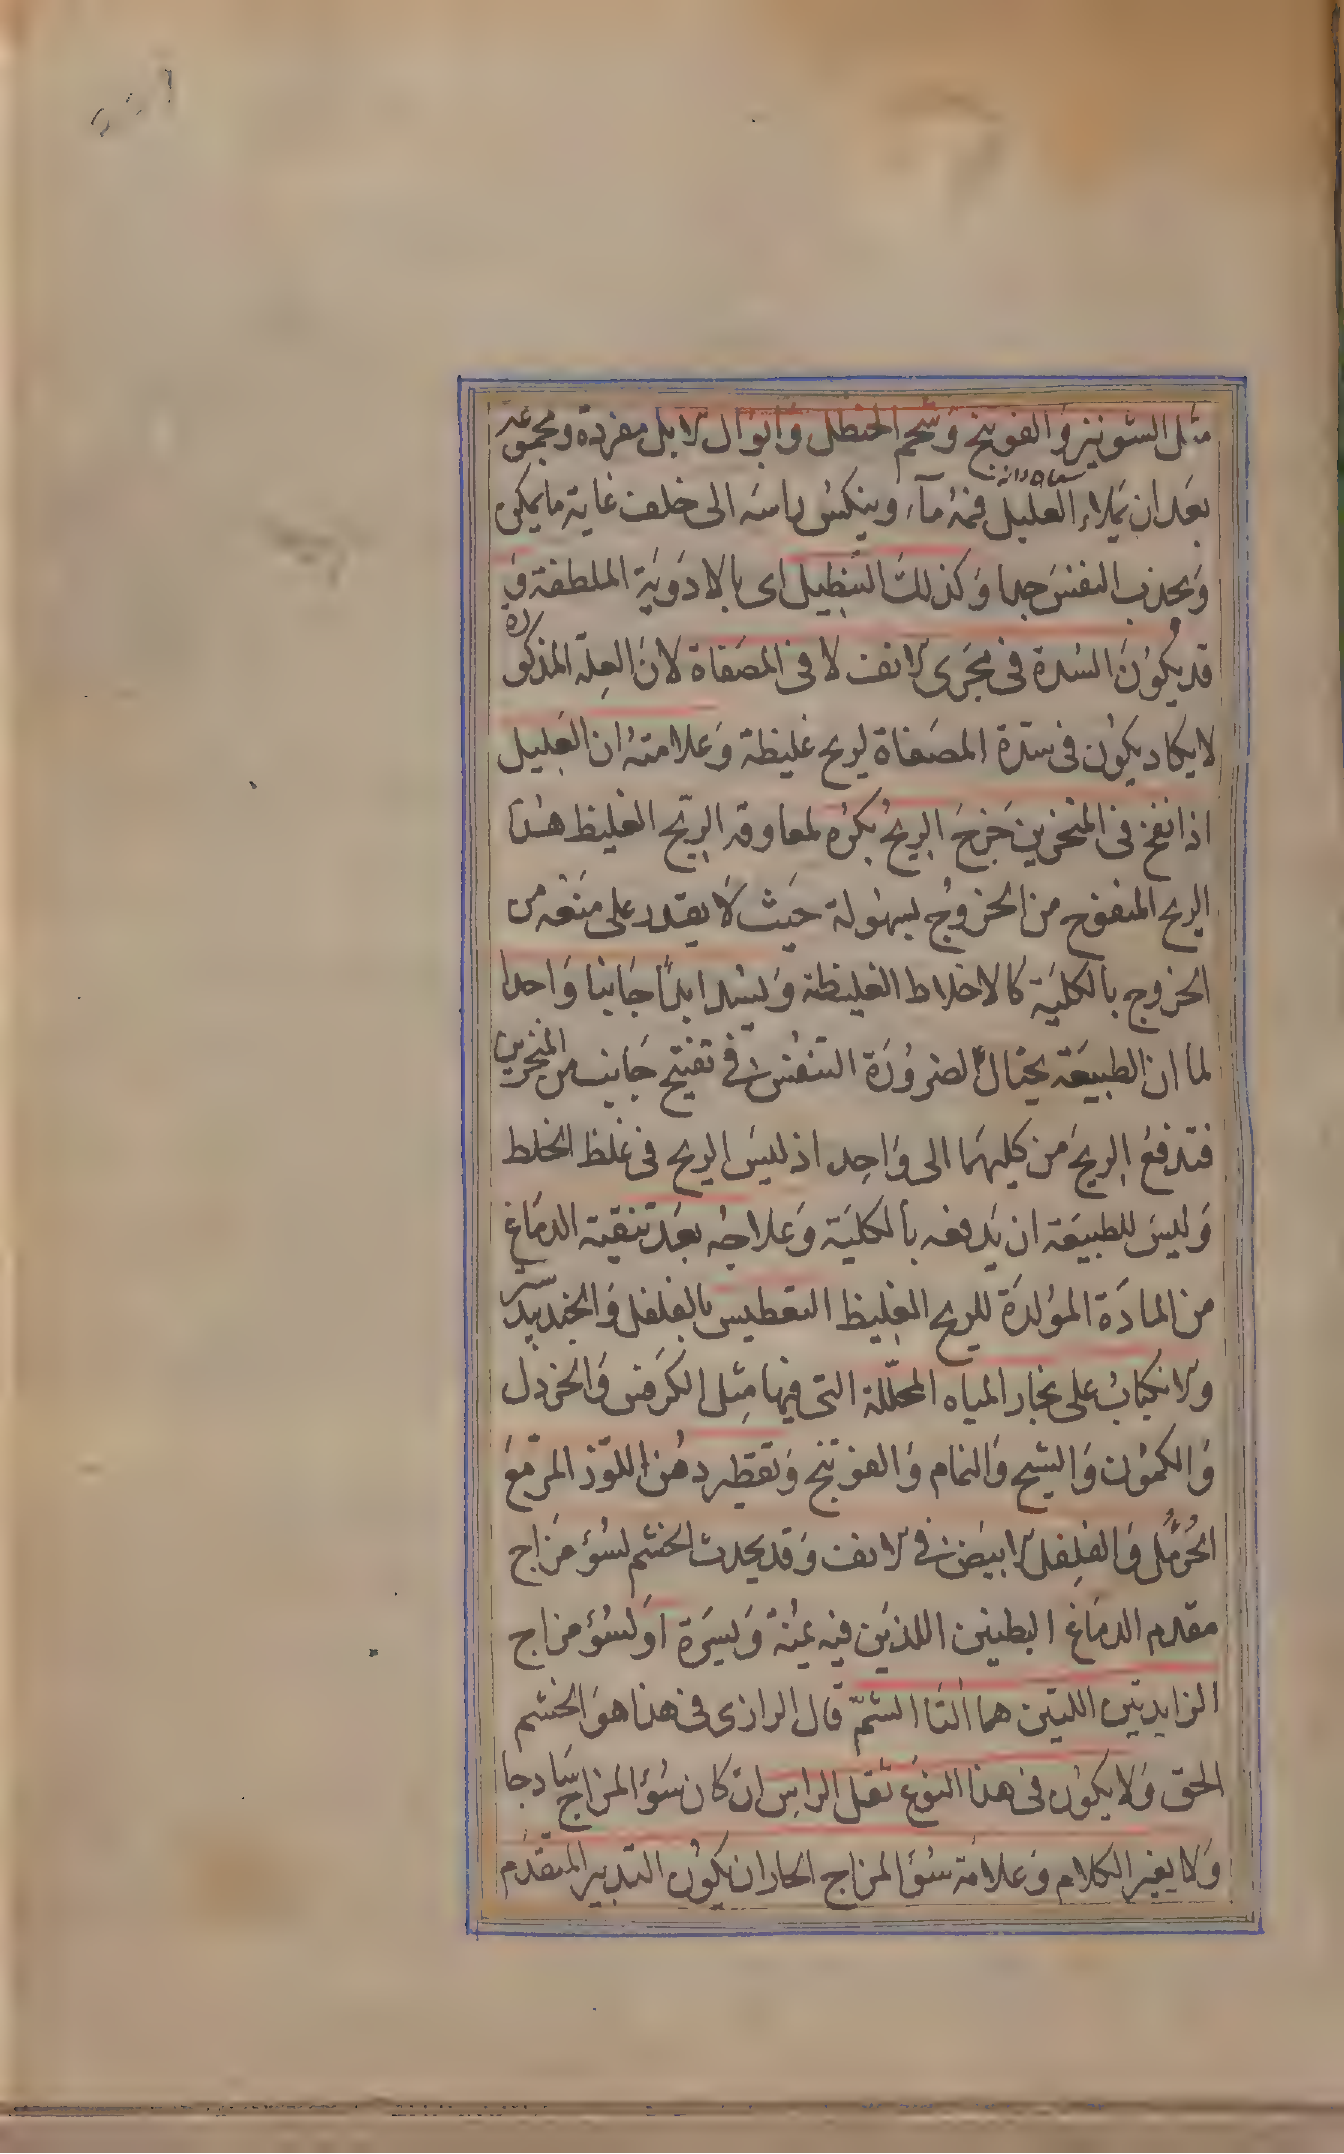 مثل الشونيز والفوتنج وشحم الحنظل وابوال الابل مفردة ومجموعة
بعد ان يملاء العليل فمه مآء وينكس راسه الى خلف غاية ما يمكن
ويجذب النفس جدا وكذلك التنطيل اى بالادوية الملطفة و
قد يكون السدة فى مجرى الانف لا فى المصفاة لان العلة المذكورة
لا يكاد يكون فى سدة المصفاة لريح غليظة وعلامته ان العليل
اذا نفخ فى المنخرين خرج الريح بكره لمعاوقة الريح الغليظ هذا
الريح المنفوخ من الخروج بسهولة حيث لا يقدر على منعه من
الخروج بالكلية كالاخلاط الغليظة ويسد ابدا جانبا واحدا
لما ان الطبيعة يحتال لضرورة التنفس فى تفتيح جانب من المنخرين
فتدفع الريح من كليهما الى واحد اذ ليس الريح فى غلظ الخلط
وليس للطبيعة ان يدفعه بالكلية وعلاجه بعد تنقية الدماغ
من المادة المولدة للريح الغليظ التعطيس بالفلفل والجندبيدستر
والانكباب على بخار المياه المحللة التى فيها مثل الكرفس والخردل
والكمون والشيح والنمام والفوتنج وتقطير دهن اللوز المر مع
الحرمل والفلفل الابيض فى الانف وقد يحدث الخشم لسؤ مزاج
مقدم الدماغ البطنين اللذين فيه يمنة ويسرة او لسؤ مزاج
الزايدتين اللتين هما التا الشم قال الرازى فى هذا هو الخشم
الحق ولا يكون فى هذا النوع ثقل الراس ان كان سؤ المزاج سادجا
ولا يغير الكلام وعلامة سؤ المزاج الحار ان يكون التدبير المتقدم